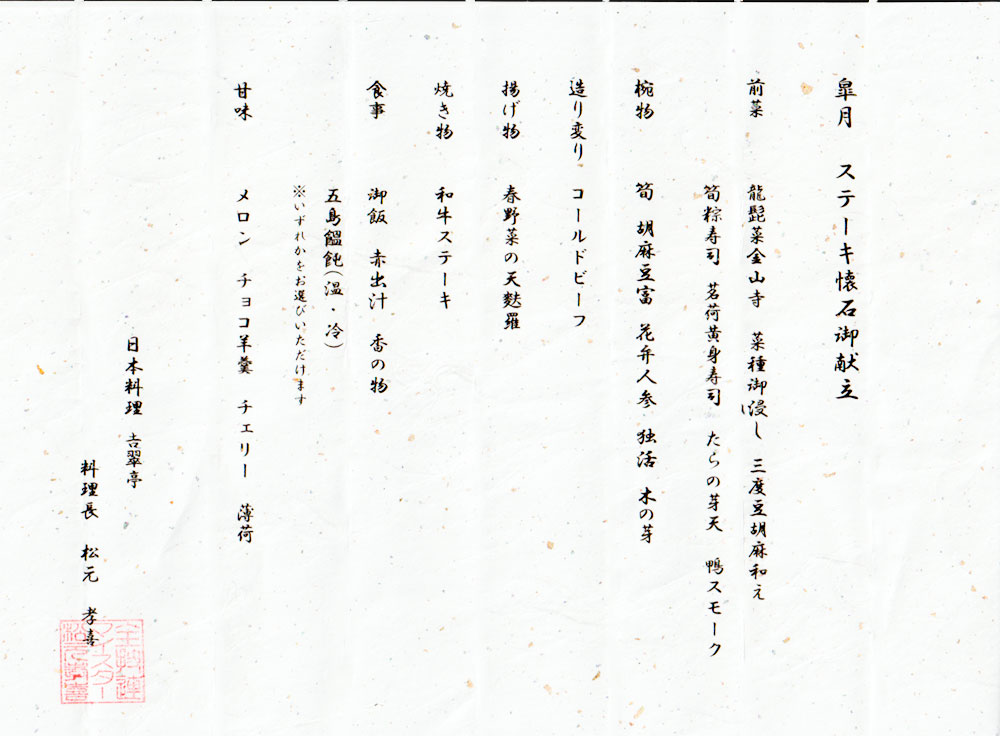 皐月　ステーキ懐石御献立
前菜　龍髭菜金山寺　菜種御浸し　三度豆胡麻和え
筍粽寿司　茗荷黄身寿司　たらの芽天　鴨スモーク
椀物　筍　胡麻豆富　花弁人参　独活　木の芽
造り変り　コールドビーフ
揚げ物　春野菜の天麩羅
焼き物　和牛ステーキ
食事　御飯　赤出汁　香の物
五島饂飩(温・冷)
※いずれかをお選びいただけます
甘味　メロン　チョコ羊羹　チェリー　薄荷
日本料理　吉翠亭
料理長　松元　孝喜
マイスター
松元孝喜